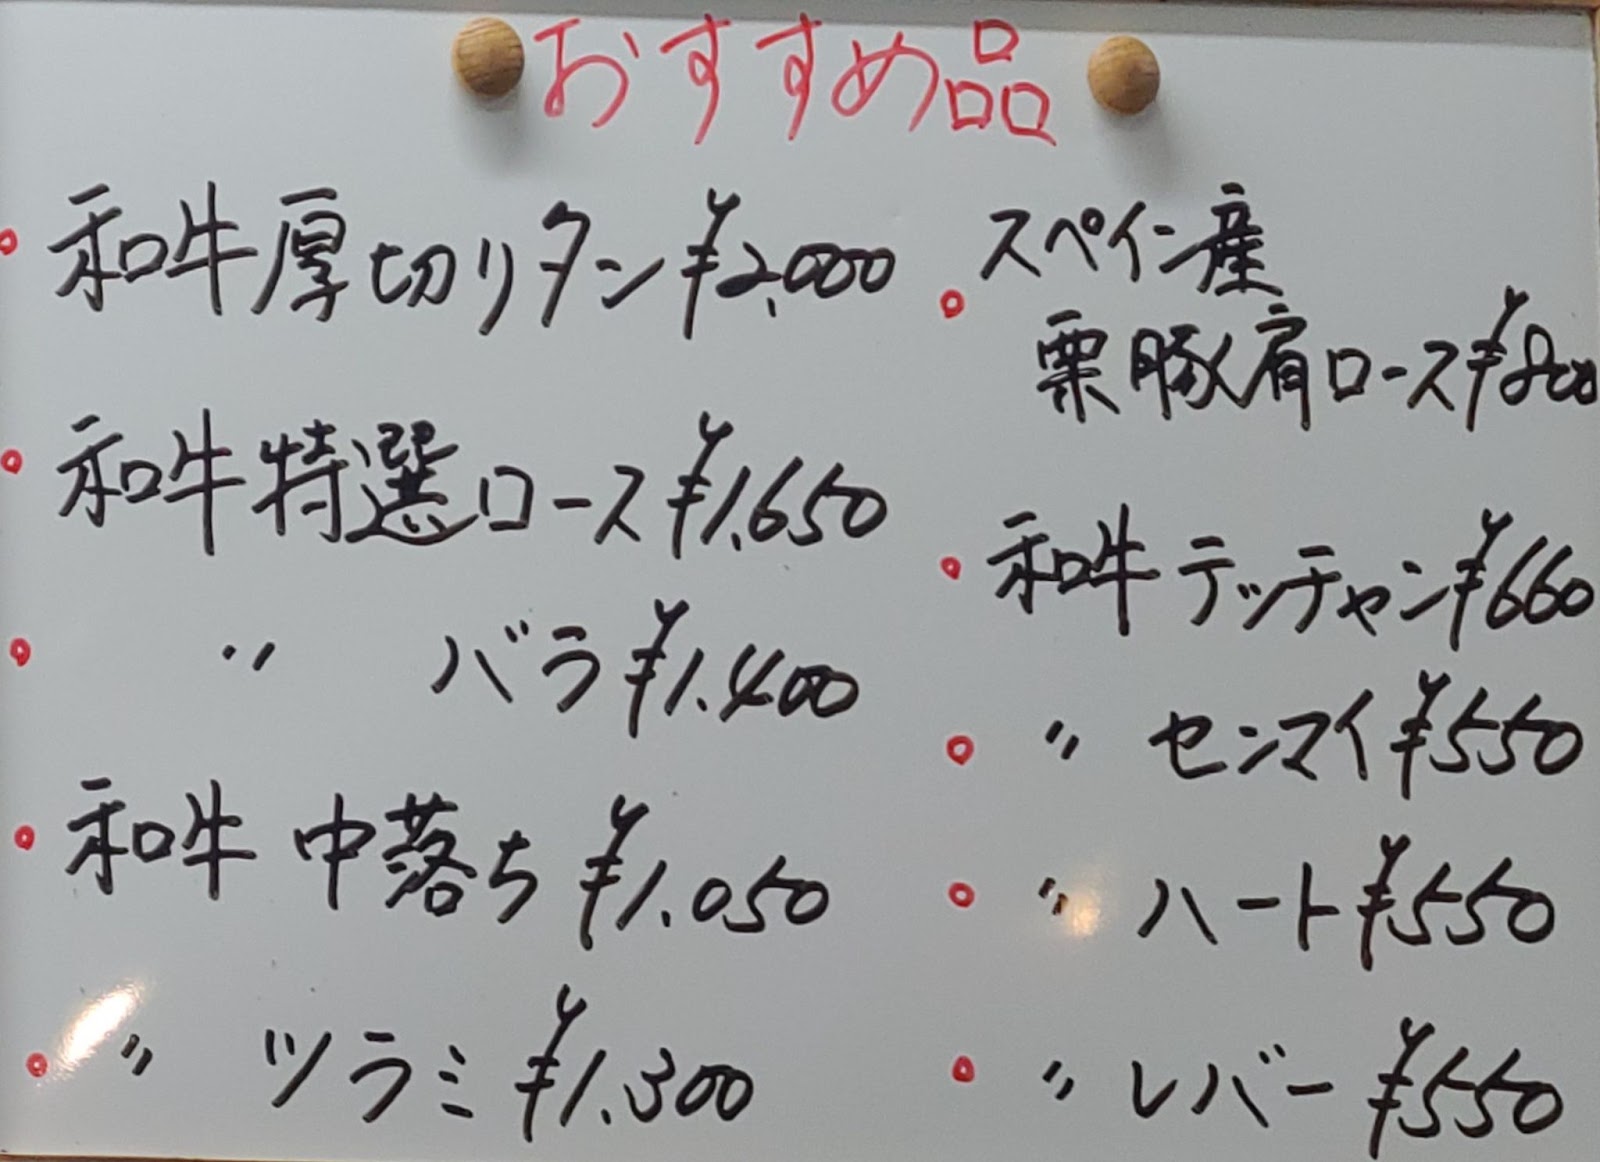 おすすめ品
和牛厚切りタン¥2,000
和牛特選ロース¥1,650
〃 バラ¥1.400
和牛 中落ち¥1.050
〃 ツラミ¥1.300
スペイン産
栗豚肩ロース¥800
和牛テッチャン¥660
〃 センマイ¥550
〃 ハート¥550
〃 レバー¥550